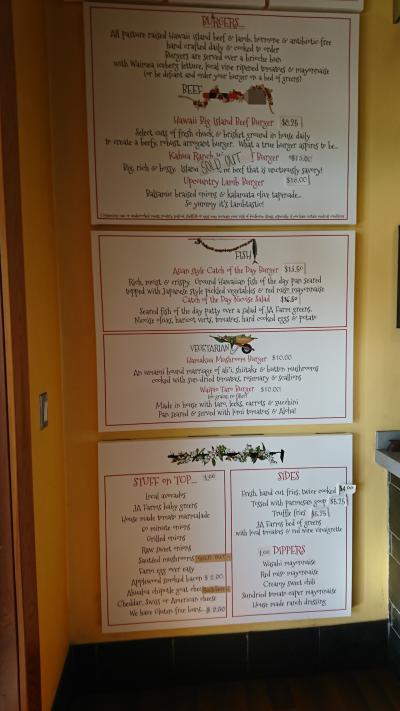 BURGERS...
All pasture raised Hawaii island beef & lamb, hormone & antibiotic free
hand crafted daily & cooked to order
Burgers are served over a brioche bun
with Waimea iceberg lettuce, local vine ripened tomatoes & mayonnaise
(or be defiant and order your burger on a bed of greens)
BEEF
Hawaii Big Island Beef Burger $8.25
Select cuts of fresh chuck & brisket ground in house daily
to create a beefy, robust, arrogant burger. What a true burger aspires to be...
Kahua Ranch SOLD OUT Burger
Big, rich & bossy. Island beef that is unctuously savory!
Upcountry Lamb Burger
Balsamic braised onions & kalamata olive tapenade...
So yummy it's Lambtastic!
FISH
Asian style Catch of the Day Burger $15.50
Rich, moist & crispy. Ground Hawaiian fish of the day pan seared
topped with Japanese style pickled vegetables & red miso mayonnaise
Catch of the Day Nicoise Salad $16.50
Seared fish of the day patty over a salad of JA Farm greens,
Nicoise olives, haricot verts, tomatoes, hard cooked eggs & potato
VEGETARIAN
Hamakua Mushroom Burger $10.00
An umami bound marriage of ali'i, shiitake & button mushrooms
cooked with sun-dried tomatoes, rosemary & scallions
Waipio Taro Burger $10.00
no grains or filler!
Made in house with taro, leeks, carrots & zucchini
Pan seared & served with lomi tomatoes & Aloha!
STUFF on TOP... 1.00
Local avocados
JA Farms baby greens
House made tomato marmalade
60 minute onions
Grilled onions
Raw sweet onions
Sautéed mushrooms SOLD OUT
Farm egg over easy
Applewood smoked bacon $2.00
Ahualoa chipotle goat chee
Cheddar, Swiss or American cheese
We have Gluten free buns... $2.50
SIDES
Fresh, hand cut fries, twice cooked $4.00
Tossed with parmesan goop $5.25
Truffle fries $5.25
JA Farms bed of greens
with local tomatoes & red wine vinaigrette
1.00 DIPPERS
Wasabi mayonnaise
Red miso mayonnaise
Creamy sweet chili
Sundried tomato caper mayonnaise
House made ranch dressing